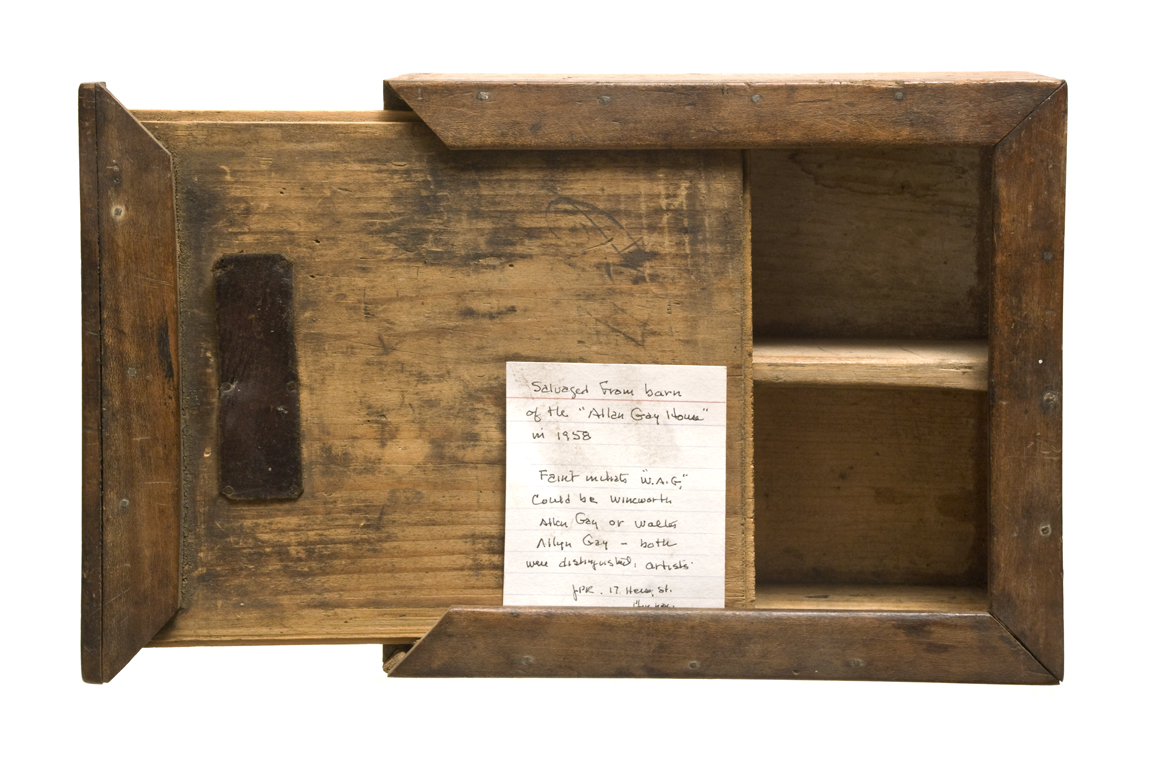 Salvaged from barn
of the "Allan Gay House"
in 1958
Faint initials "W.A.G,"
Could be Winkworth
Allen Gay or Walter
Allyn Gay – both
were distinguished, artists.
JPR. 17 St.